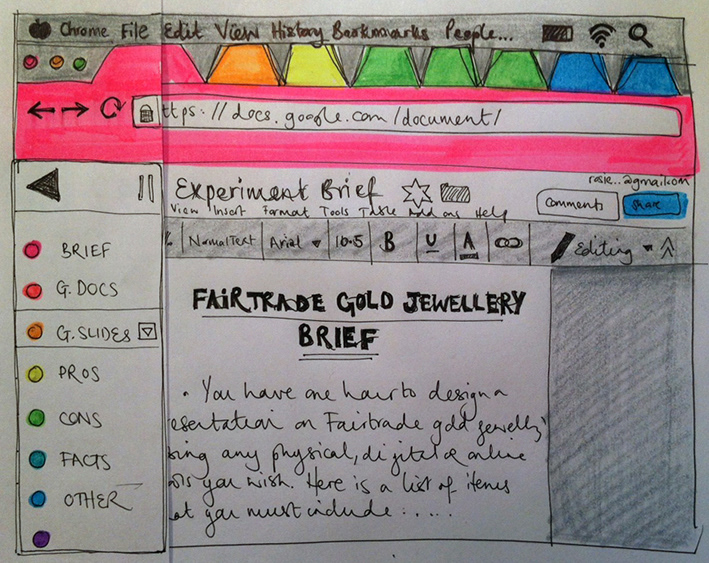 Chrome File Edit View History Bookmarks People...
ttps://docs.google.com/document/
Experiment Brief
rosie...@gmail.com
View Insert Format Tools Table Add ons Help
Comments
Share
% Normal Text Arial 10.5 B U A Editing
BRIEF
G.DOCS
G.SLIDES
PROS
CONS
FACTS
OTHER
FAIRTRADE GOLD JEWELLERY
BRIEF
• You have one hour to design a
resentation on Fairtrade gold jewellry
sing any physical, digital or online
ols you wish. Here is a list of items
at you must include : ....